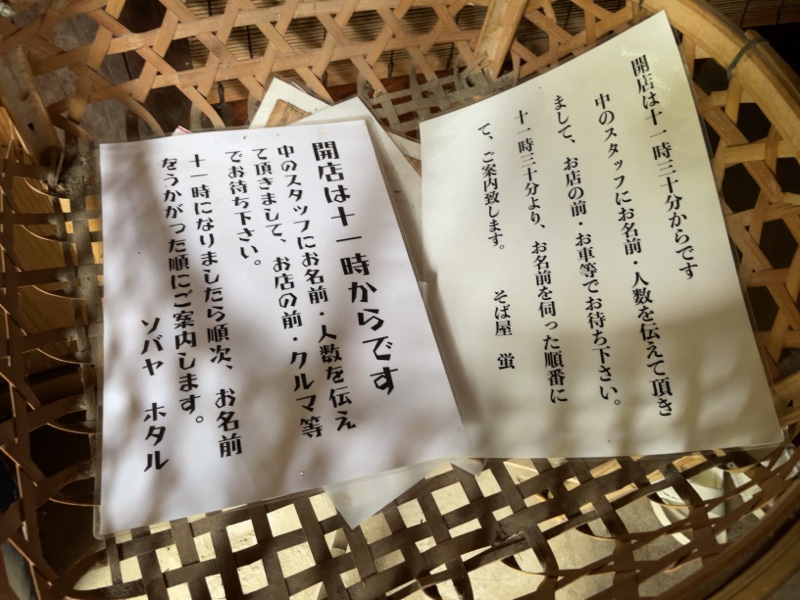 開店は十一時からです
中のスタッフにお名前・人数を伝え
て頂きまして、お店の前・クルマ等
でお待ち下さい。
十一時になりましたら順次、お名前
をうかがった順にご案内します。
ソバヤ ホタル
開店は十一時三十分からです
中のスタッフにお名前・人数を伝えて頂き
まして、お店の前・お車等でお待ち下さい。
十一時三十分より、お名前を伺った順番に
て、ご案内致します。
そば屋 蛍